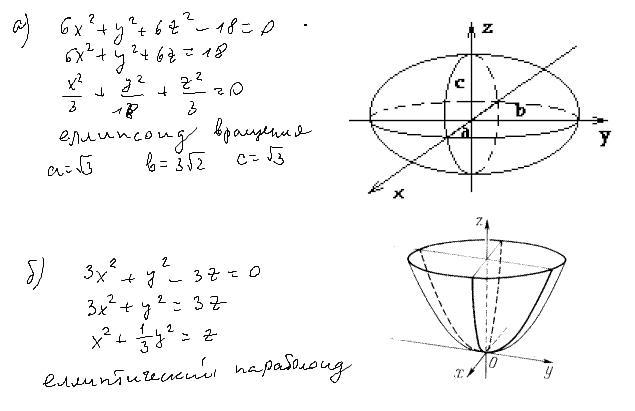 а) 6x² + y² + 6z² - 18 = 0
6x² + y² + 6z = 18
x²/3 + y²/18 + z²/3 = 0
еллипсоид вращения
a = √3 b = 3√2 c = √3
z
c
b
a
y
x
б) 3x² + y² - 3z = 0
3x² + y² = 3z
x² + 1/3 y² = z
еллиптический параболоид
z
x
O
y